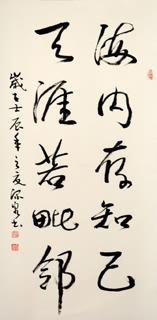 海内存知己
天涯若毗邻
歲在壬辰年之夏